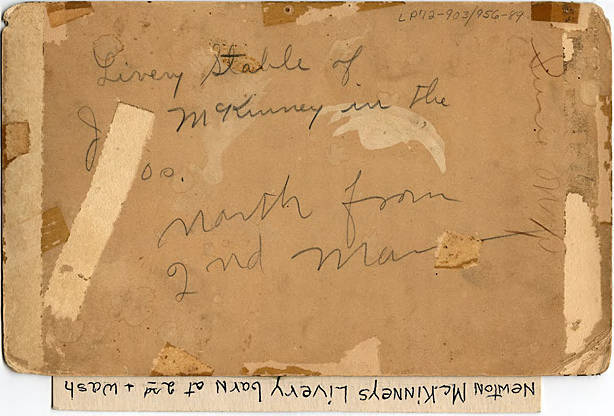 LP72-903/956-89
Livery Stable of
J McKinney in the
os.
north from
2nd Ma
Newton McKinneys Livery barn at 2nd + wash